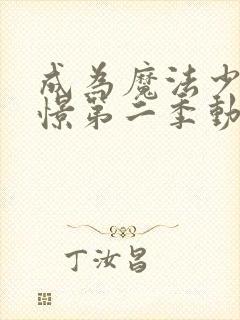 成為魔法少
憬第二季動
丁汝昌